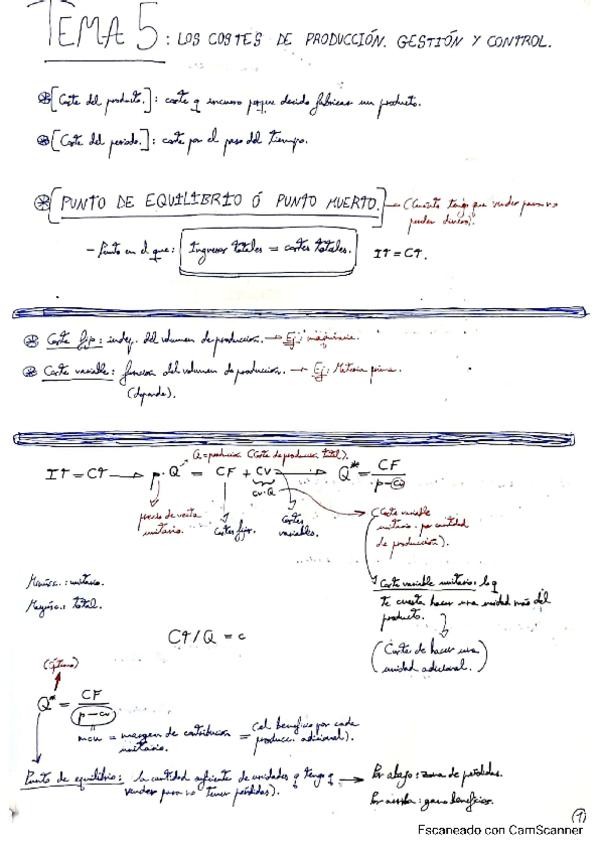 TEMA 5: LOS COSTES DE PRODUCCIÓN. GESTIÓN Y CONTROL.
[Coste del producto.]: coste q incurro porque decido fabricar un producto.
[Coste del periodo.]: coste por el paso del tiempo.
[PUNTO DE EQUILIBRIO Ó PUNTO MUERTO.] → (Cuánto tengo que vender para no
perder dinero).
- Punto en el que: Ingresos totales = costes totales. IT = CT.
Coste fijo: indep. del volumen de produccion. → Ej: maquinaria.
Coste variable: funcion del volumen de produccion. → Ej: Materia prima.
(depende).
Q = produccion (Coste de produccion total).
IT = CT → p·Q = CF + CV → Q* = CF / p - cv
cv·Q
precio de venta
unitario.
Costes fijos.
Costes
variables.
(Coste variable
unitario por cantidad
de producción).
Minúsc.: unitario.
Mayúsc.: total.
Coste variable unitario: lo q
te cuesta hacer una unidad más del
producto.
CT/Q = c
(Coste de hacer una
unidad adicional.)
(Óptimo)
Q* = CF / p - cv
mcu = margen de contribución unitario. = (el beneficio por cada
producc. adicional).
Punto de equilibrio: la cantidad suficiente de unidades q tengo q
vender para no tener pérdidas).
→ Por abajo: zona de pérdidas.
Por arriba: gano beneficios.
(1)
Escaneado con CamScanner